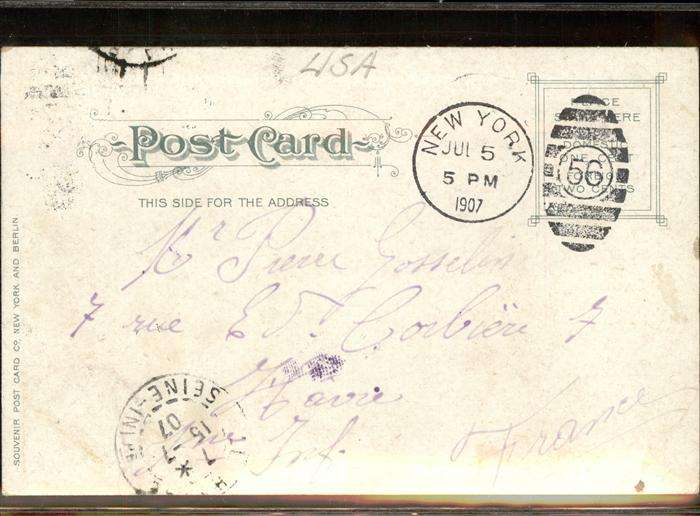 USA
POST CARD
THIS SIDE FOR THE ADDRESS
NEW YORK
JUL 5
5 PM
1907
PLACE
STAMP HERE
DOMESTIC
ONE CENT
FOREIGN
TWO CENTS
56
Mr Pierre Gosselin
7 rue Edd. Corbière 7
Havre
Seine Inf.
France
SEINE-INF
7
15
07
SOUVENIR POST CARD CO. NEW YORK AND BERLIN